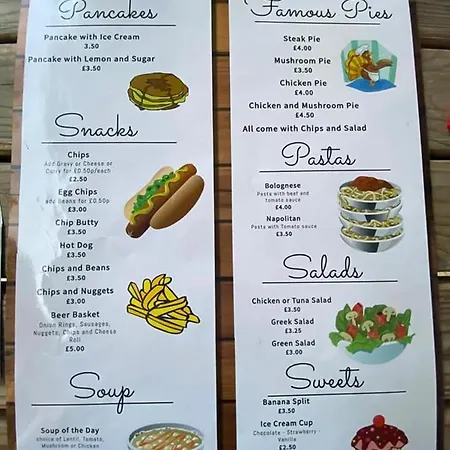 Pancakes
Pancake with Ice Cream
3.50
Pancake with Lemon and Sugar
£3.50
Snacks
Chips
Add Gravy or Cheese or
Curry for £0.50p/each
£2.50
Egg Chips
add Beans for £0.50p
£3.00
Chip Butty
£3.50
Hot Dog
£3.50
Chips and Beans
£3.50
Chips and Nuggets
£3.00
Beer Basket
Onion Rings, Sausages,
Nuggets, Chips and Cheese
Roll
£5.00
Soup
Soup of the Day
choice of Lentil, Tomato,
Mushroom or Chicken
Famous Pies
Steak Pie
£4.00
Mushroom Pie
£3.50
Chicken Pie
£4.00
Chicken and Mushroom Pie
£4.50
All come with Chips and Salad
Pastas
Bolognese
Pasta with beef and
tomato sauce
£4.00
Napolitan
Pasta with Tomato sauce
£3.50
Salads
Chicken or Tuna Salad
£3.50
Greek Salad
£3.25
Green Salad
£3.00
Sweets
Banana Split
£3.50
Ice Cream Cup
Chocolate - Strawberry -
Vanilla
£2.50